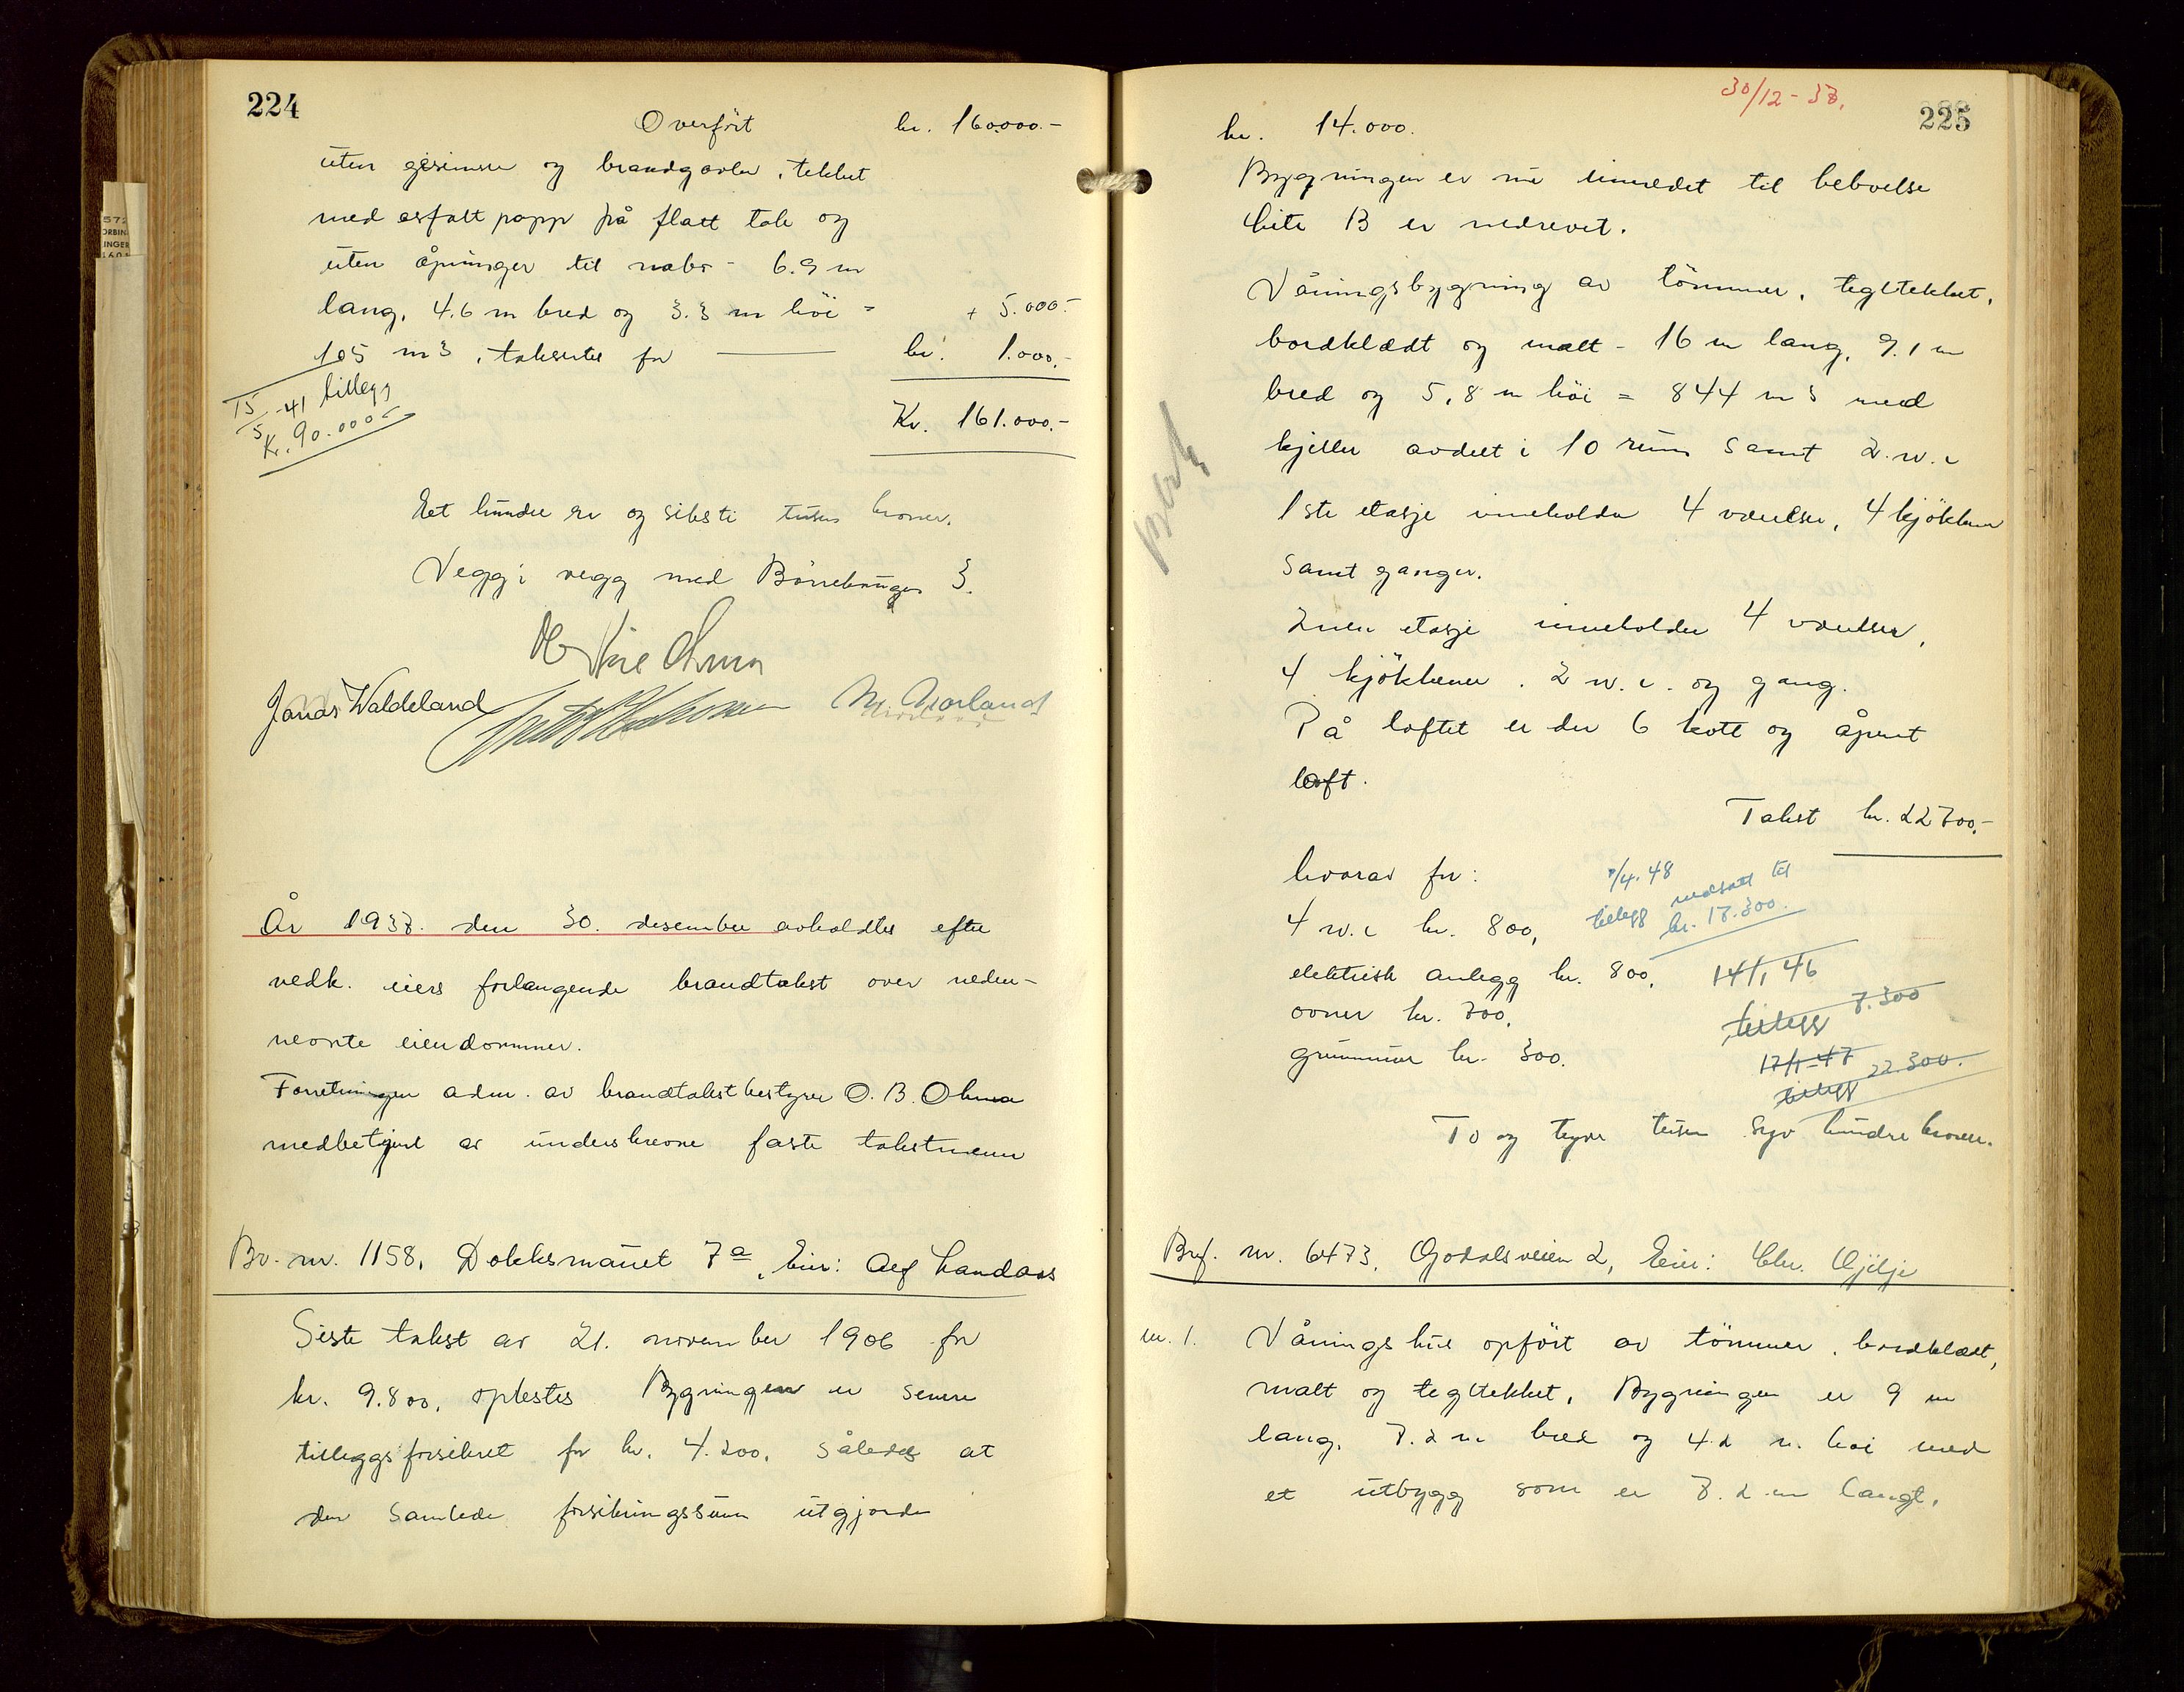 224
Overført kr. 160.000.-
uten gesimser og brandgavler, tekket
med asfalt papp på flatt tak og
uten åpninger til nabo - 6.9 m
lang, 4.6 m bred og 3.3 m höi =
+ 5.000.-
105 m3, taksertes for — kr. 1.000.-
15/5-41 tillegg
Kr. 90.000
Kr. 161.000.-
Et hundre en og seksti tusen kroner.
Vegg i vegg med Börrehaugen 3.
Jonas Waldeland
År 1937. den 30. desember avholdtes efter
vedk. eiers forlangende brandtakst over neden-
nevnte eiendommer.
Forretningen adm. av brandtakstbestyrer O. B. Ohma
medbetjent av underskrevne faste takstmenn
Br. nr. 1158, Dokksmauet 7a, Eier: Alf Landaas
Siste takst av 21. november 1906 for
kr. 9.800, oplestes Bygningen er senere
tilleggsforsikret for kr. 4.200, således at
den samlede forsikringssum utgjorde
30/12-37.
225
kr. 14.000.
Bygningen er nu innredet til bebvelse
Lite B er nedrevet.
Våningsbygning av tömmer, tegltekket,
bordklædt og malt - 16 m lang, 9.1 m
bred og 5,8 m höi = 844 m3 med
kjeller avdelt i 10 rum samt 2 w.c
1ste etasje inneholder 4 værelser, 4 kjökkener
samt ganger.
2nen etasje inneholder 4 værelser,
4 kjökkener. 2 w.c. og gang.
På loftet er der 6 kott og åpent
loft.
Takst kr. 22700.-
hvorav for:
7/4.48
tillegg nedsatt til
kr. 17.300.
4 w.c kr. 800,
elektrisk anlegg kr. 800, 14/1 46
ovner kr. 700, tillegg 7.300
grunnmur kr. 300. 17/1-47
tillegg 22.300.
To og tyve tusen syv hundre kroner.
Brf. nr. 6473, Godalsveien 2, Eier: Chr. Gjilje
nr. 1. Våningshus opfört av tömmer, bordklædt,
malt og tegltekket, Bygningen er 9 m
lang, 7.2 m bred og 4.2 m. höi med
et utbygg som er 7.2 m langt,